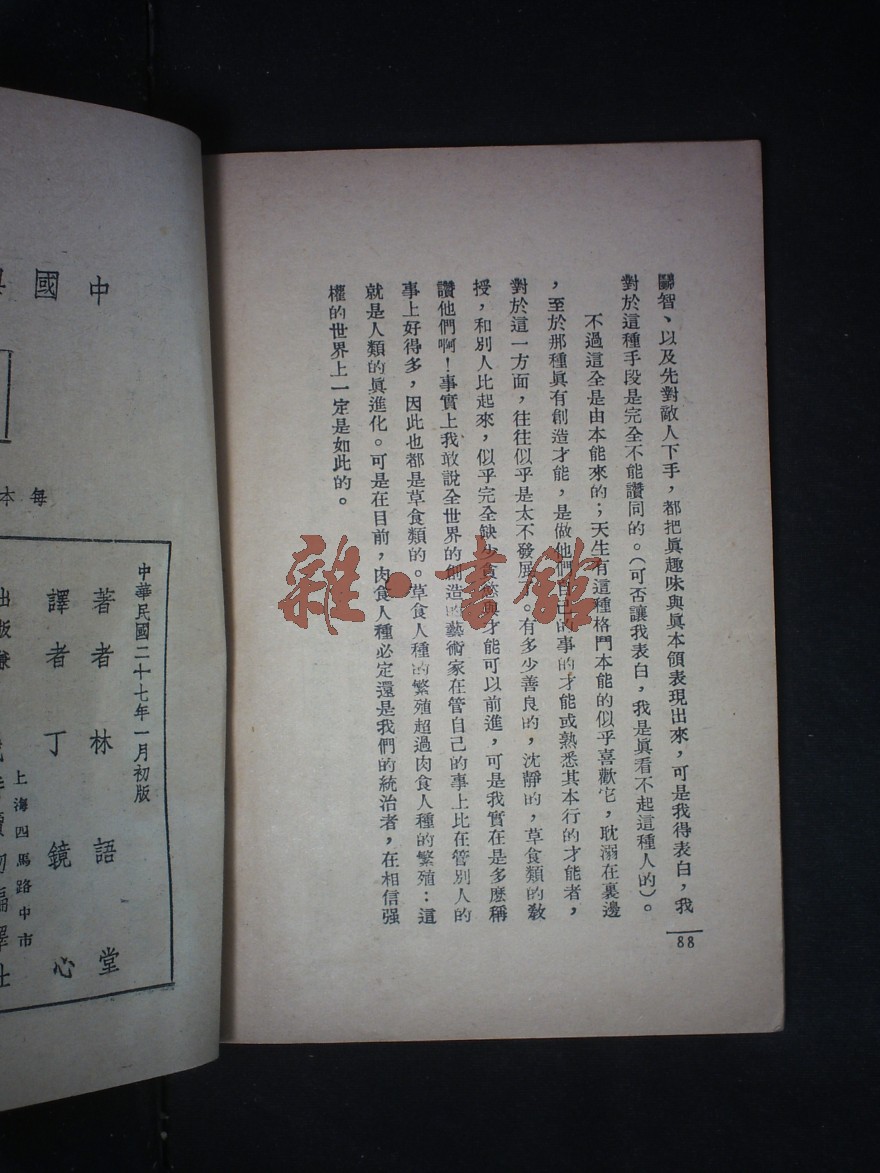 鬭智、以及先對敵人下手，都把眞趣味與眞本領表現出來，可是我得表白，我
對於這種手段是完全不能讚同的。（可否讓我表白，我是眞看不起這種人的）。
不過這全是由本能來的；天生有這種格鬥本能的似乎喜歡它，耽溺在裏邊
，至於那種眞有創造才能，是做他們自己的事的才能或熟悉其本行的才能者，
對於這一方面，往往似乎是太不發展了。有多少善良的，沈靜的，草食類的敎
授，和別人比起來，似乎完全缺少貪慾與才能可以前進，可是我實在是多麽稱
讚他們啊！事實上我敢說全世界的創造的藝術家在管自己的事上比在管別人的
事上好得多，因此也都是草食類的。草食人種的繁殖超過肉食人種的繁殖：這
就是人類的眞進化。可是在目前，肉食人種必定還是我們的統治者，在相信强
權的世界上一定是如此的。
88
雜·書館
中國
每本
中華民國二十七年一月初版
著者林語堂
譯者丁鏡心
出版兼
上海四馬路中市